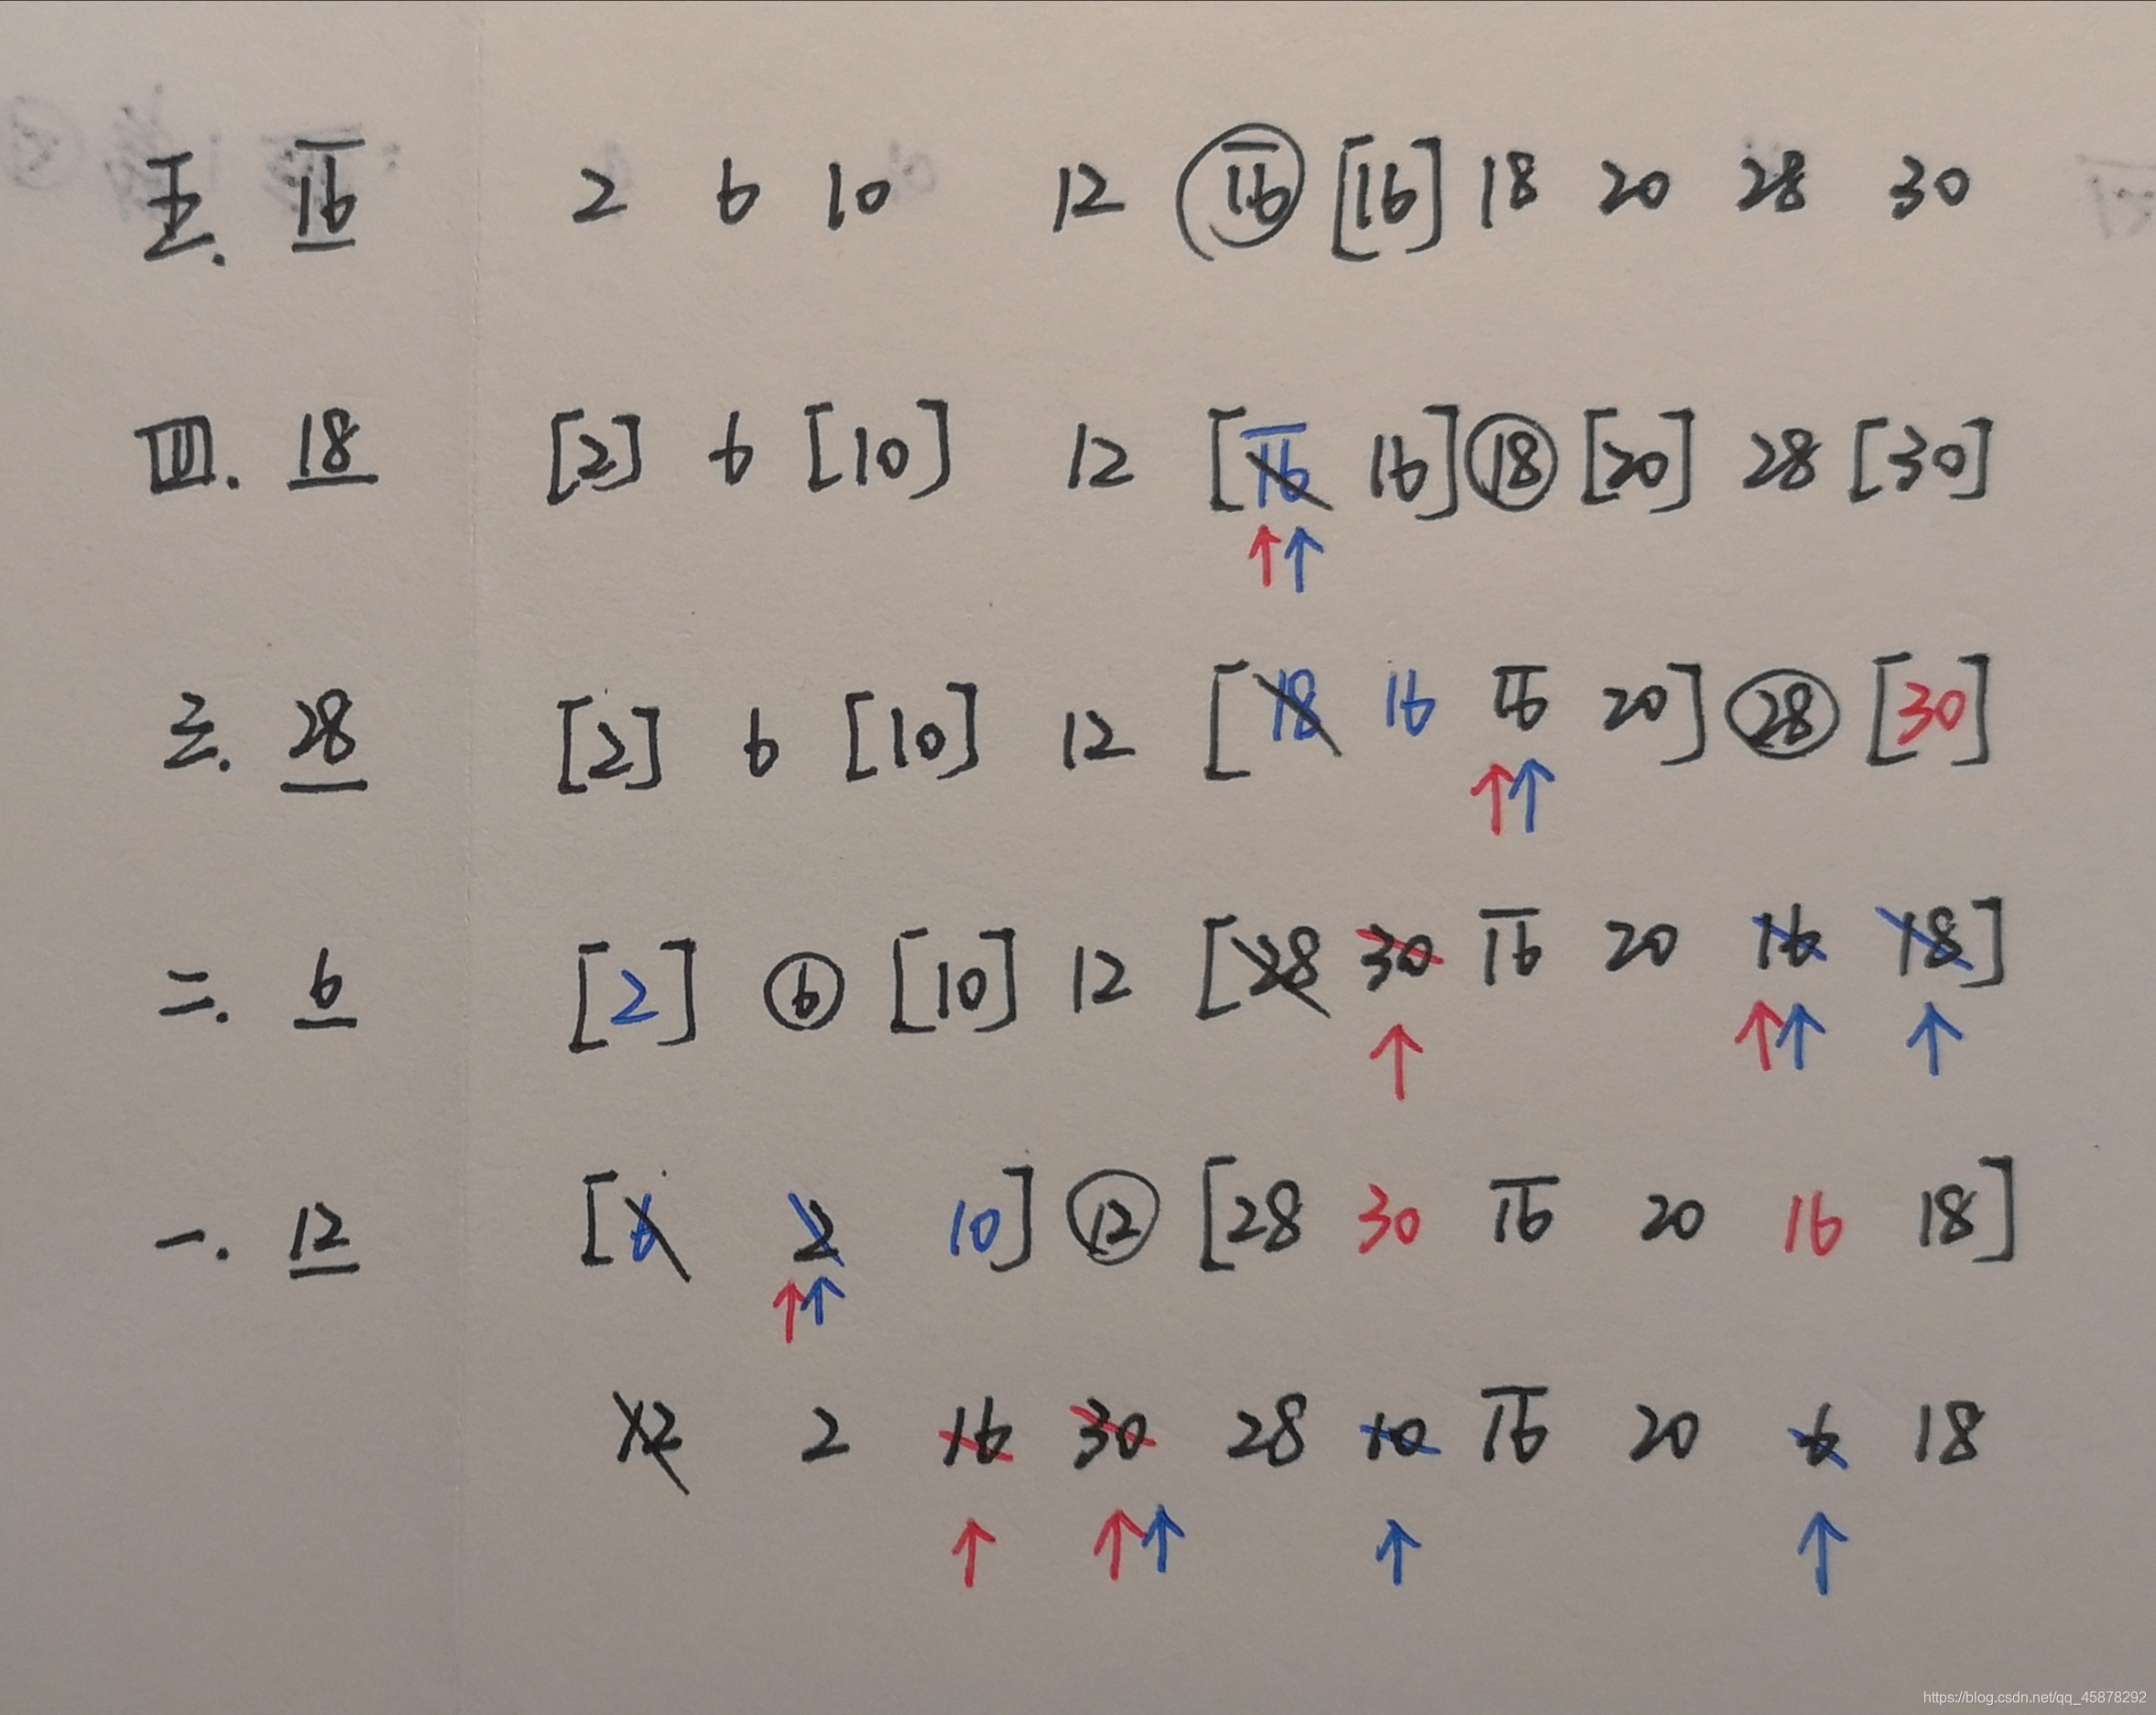 五. 1̅6̅ 2 6 10 12 1̅6̅ [16] 18 20 28 30
四. 18 [2] 6 [10] 12 [1̅6̅ 16] 18 [20] 28 [30]
三. 28 [2] 6 [10] 12 [18 16 1̅6̅ 20] 28 [30]
二. 6 [2] 6 [10] 12 [28 30 1̅6̅ 20 16 18]
一. 12 [6 2 10] 12 [28 30 1̅6̅ 20 16 18]
12 2 16 30 28 10 1̅6̅ 20 6 18
https://blog.csdn.net/qq_45878292